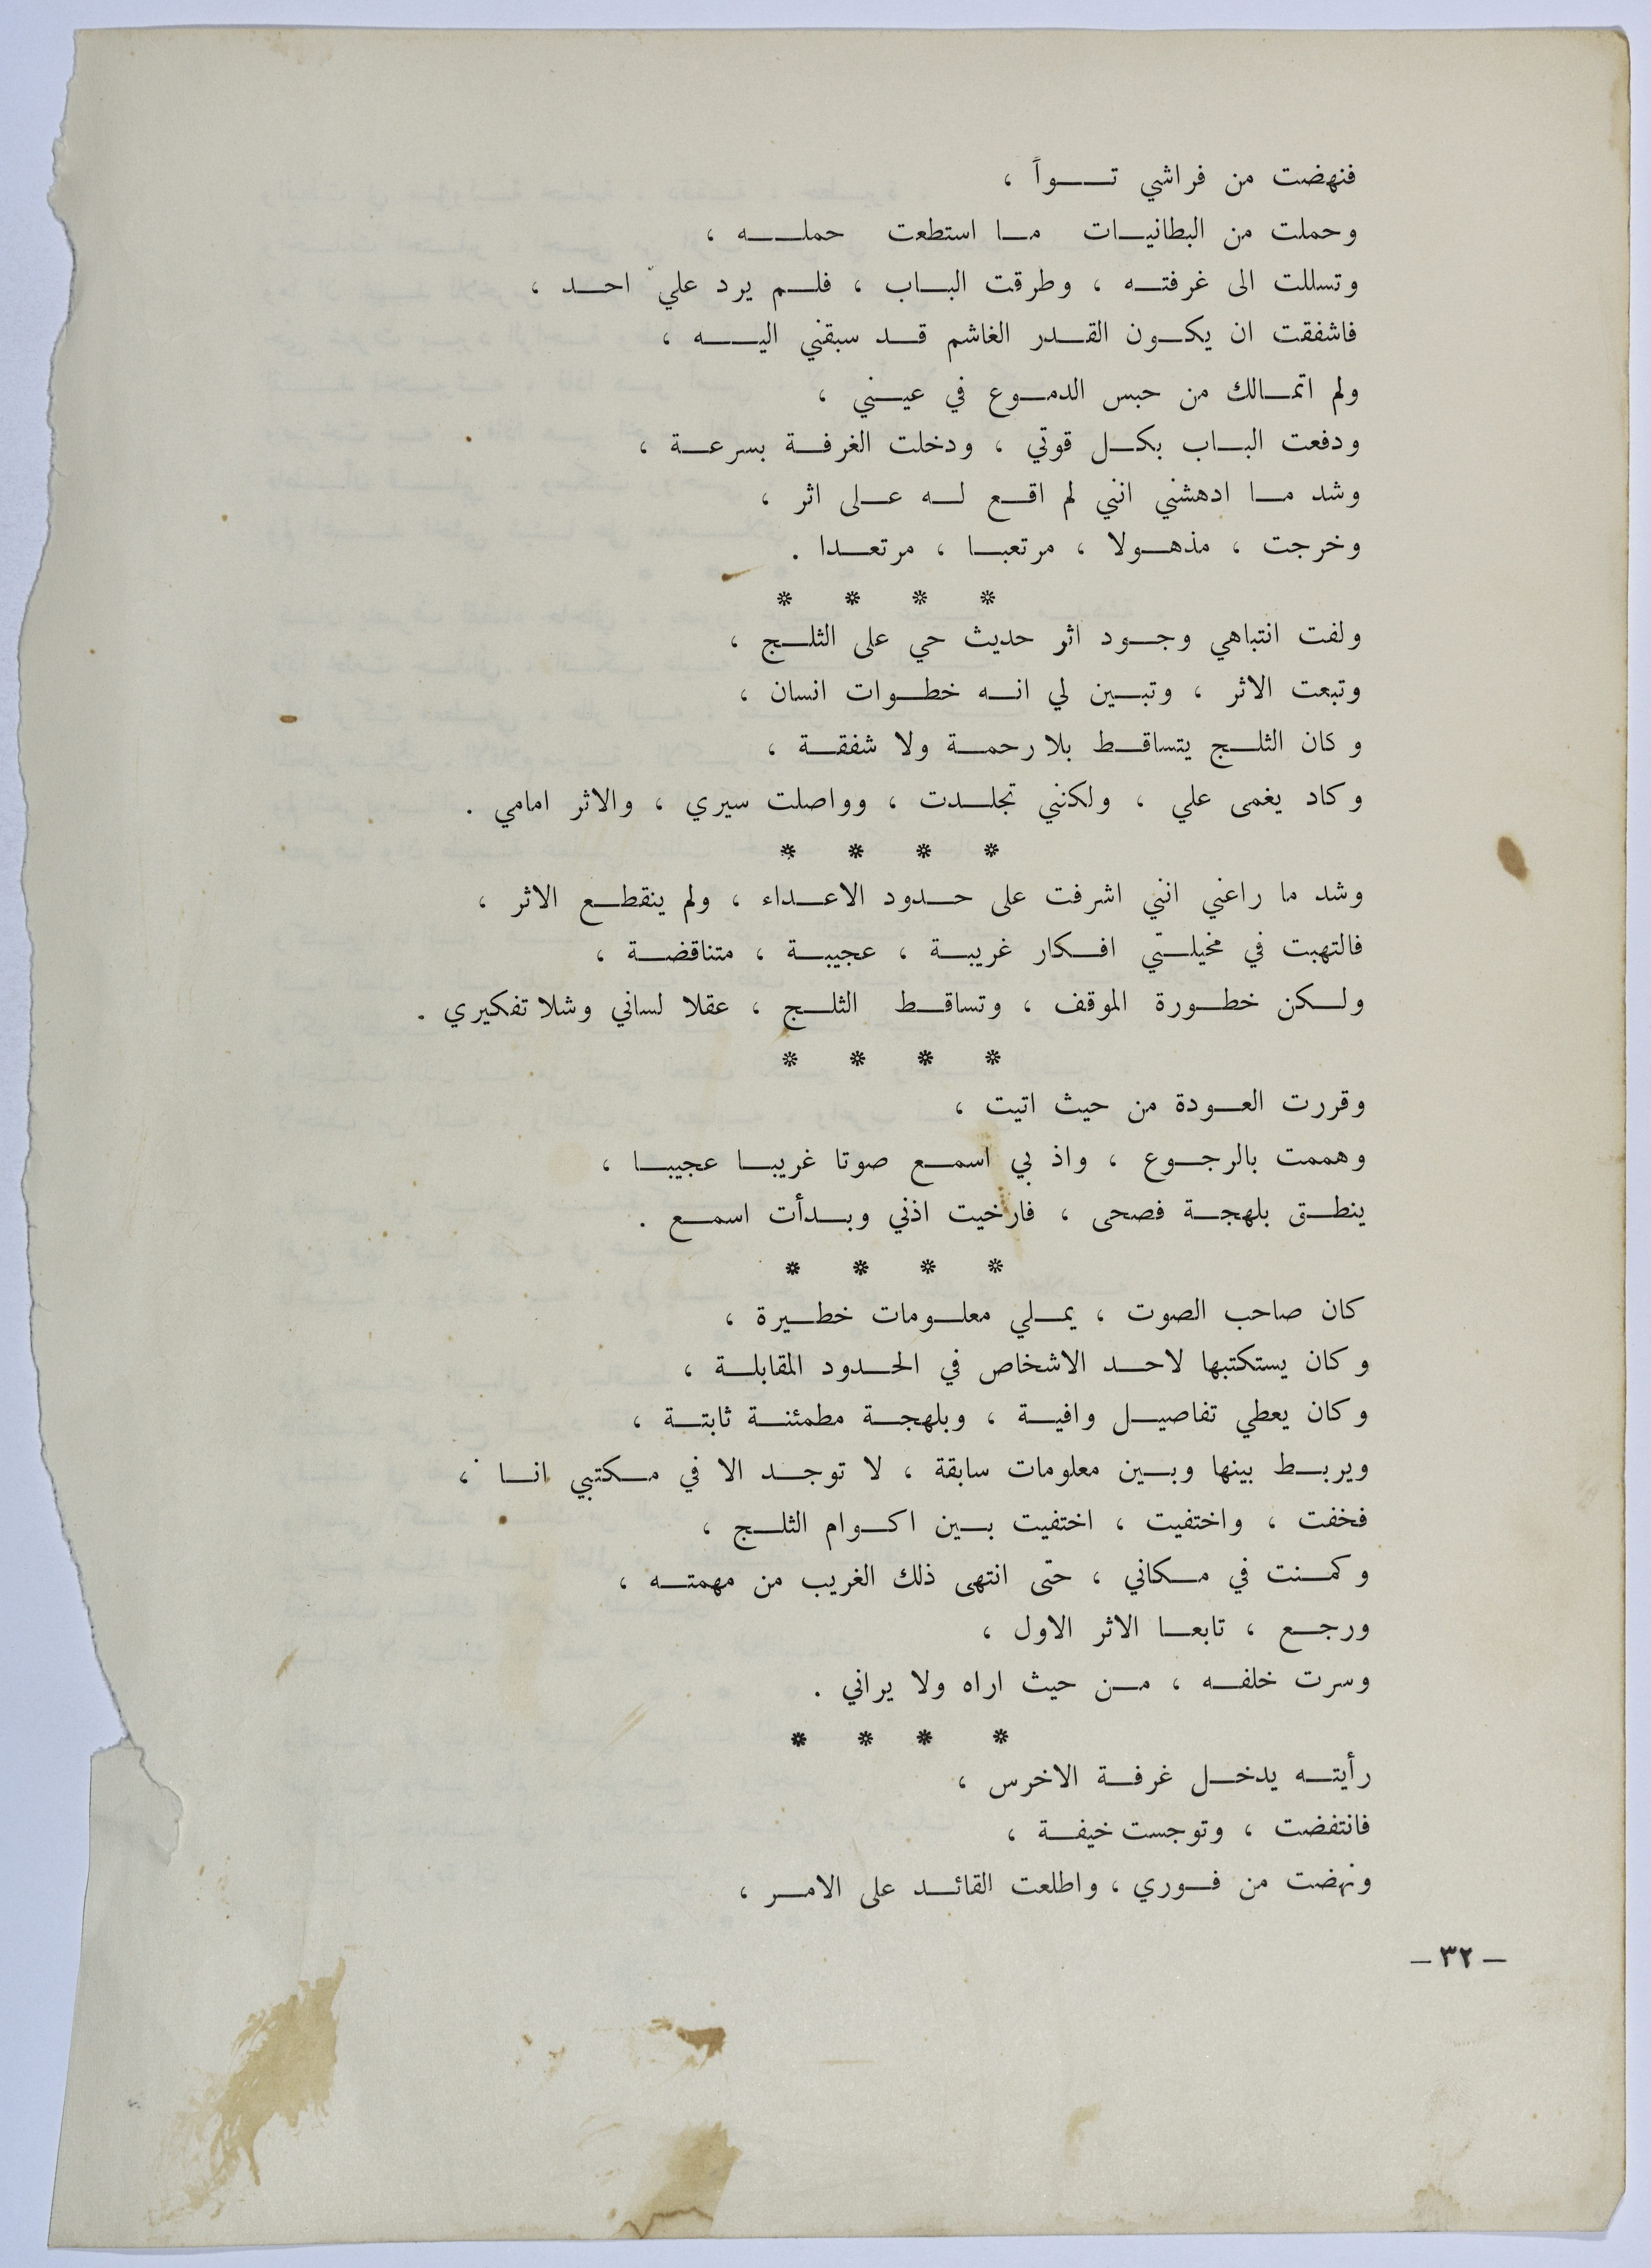 فنهضت من فراشي تواً ،
وحملت من البطانيات ما استطعت حمله ،
وتسللت الى غرفته ، وطرقت الباب ، فلم يرد عليّ احد ،
فاشفقت ان يكون القدر الغاشم قد سبقني اليه ،
ولم اتمالك من حبس الدموع في عيني ،
ودفعت الباب بكل قوتي ، ودخلت الغرفة بسرعة ،
وشد ما ادهشني انني لم اقع له على اثر ،
وخرجت ، مذهولا ، مرتعبا ، مرتعدا .
* * * *
ولفت انتباهي وجود اثر حديث حي على الثلج ،
وتبعت الاثر ، وتبين لي انه خطوات انسان ،
وكان الثلج يتساقط بلا رحمة ولا شفقة ،
وكاد يغمى علي ، ولكنني تجلدت ، وواصلت سيري ، والاثر امامي .
* * * *
وشد ما راعني انني اشرفت على حدود الاعداء ، ولم ينقطع الاثر ،
فالتهبت في مخيلتي افكار غريبة ، عجيبة ، متناقضة ،
ولكن خطورة الموقف ، وتساقط الثلج ، عقلا لساني وشلا تفكيري .
* * * *
وقررت العودة من حيث اتيت ،
وهممت بالرجوع ، واذ بي اسمع صوتا غريبا عجيبا ،
ينطق بلهجة فصحى ، فارخيت اذني وبدأت اسمع .
* * * *
كان صاحب الصوت ، يملي معلومات خطيرة ،
وكان يستكتبها لاحد الاشخاص في الحدود المقابلة ،
وكان يعطي تفاصيل وافية ، وبلهجة مطمئنة ثابتة ،
ويربط بينها وبين معلومات سابقة ، لا توجد الا في مكتبي انا ،
فخفت ، واختفيت ، اختفيت بين اكوام الثلج ،
وكمنت في مكاني ، حتى انتهى ذلك الغريب من مهمته ،
ورجع ، تابعا الاثر الاول ،
وسرت خلفه ، من حيث اراه ولا يراني .
* * * *
رأيته يدخل غرفة الاخرس ،
فانتفضت ، وتوجست خيفة ،
ونهضت من فوري ، واطلعت القائد على الامر ،
– ٣٢ –